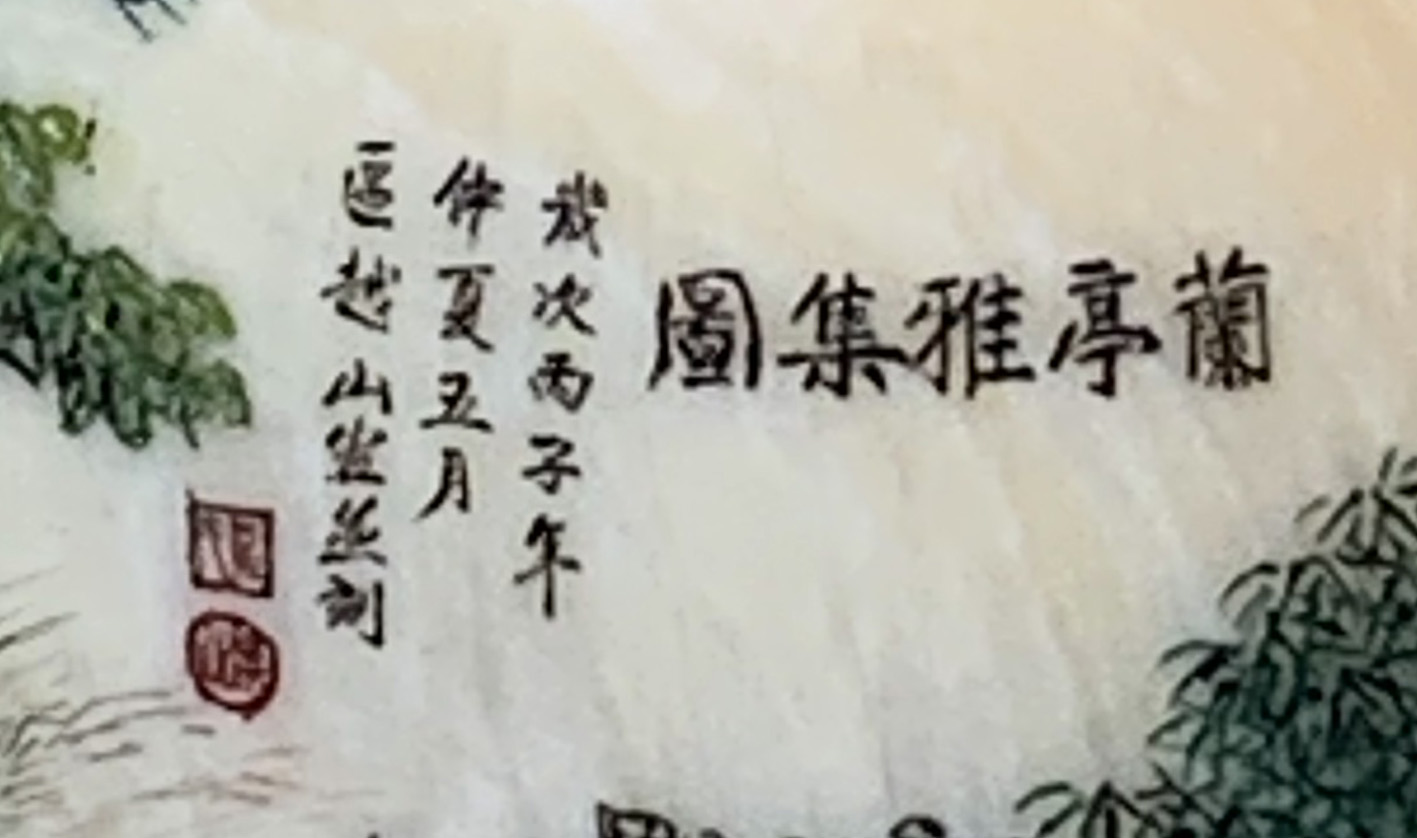 蘭亭雅集圖
歲次丙子年
仲夏五月
區越山坐並刻